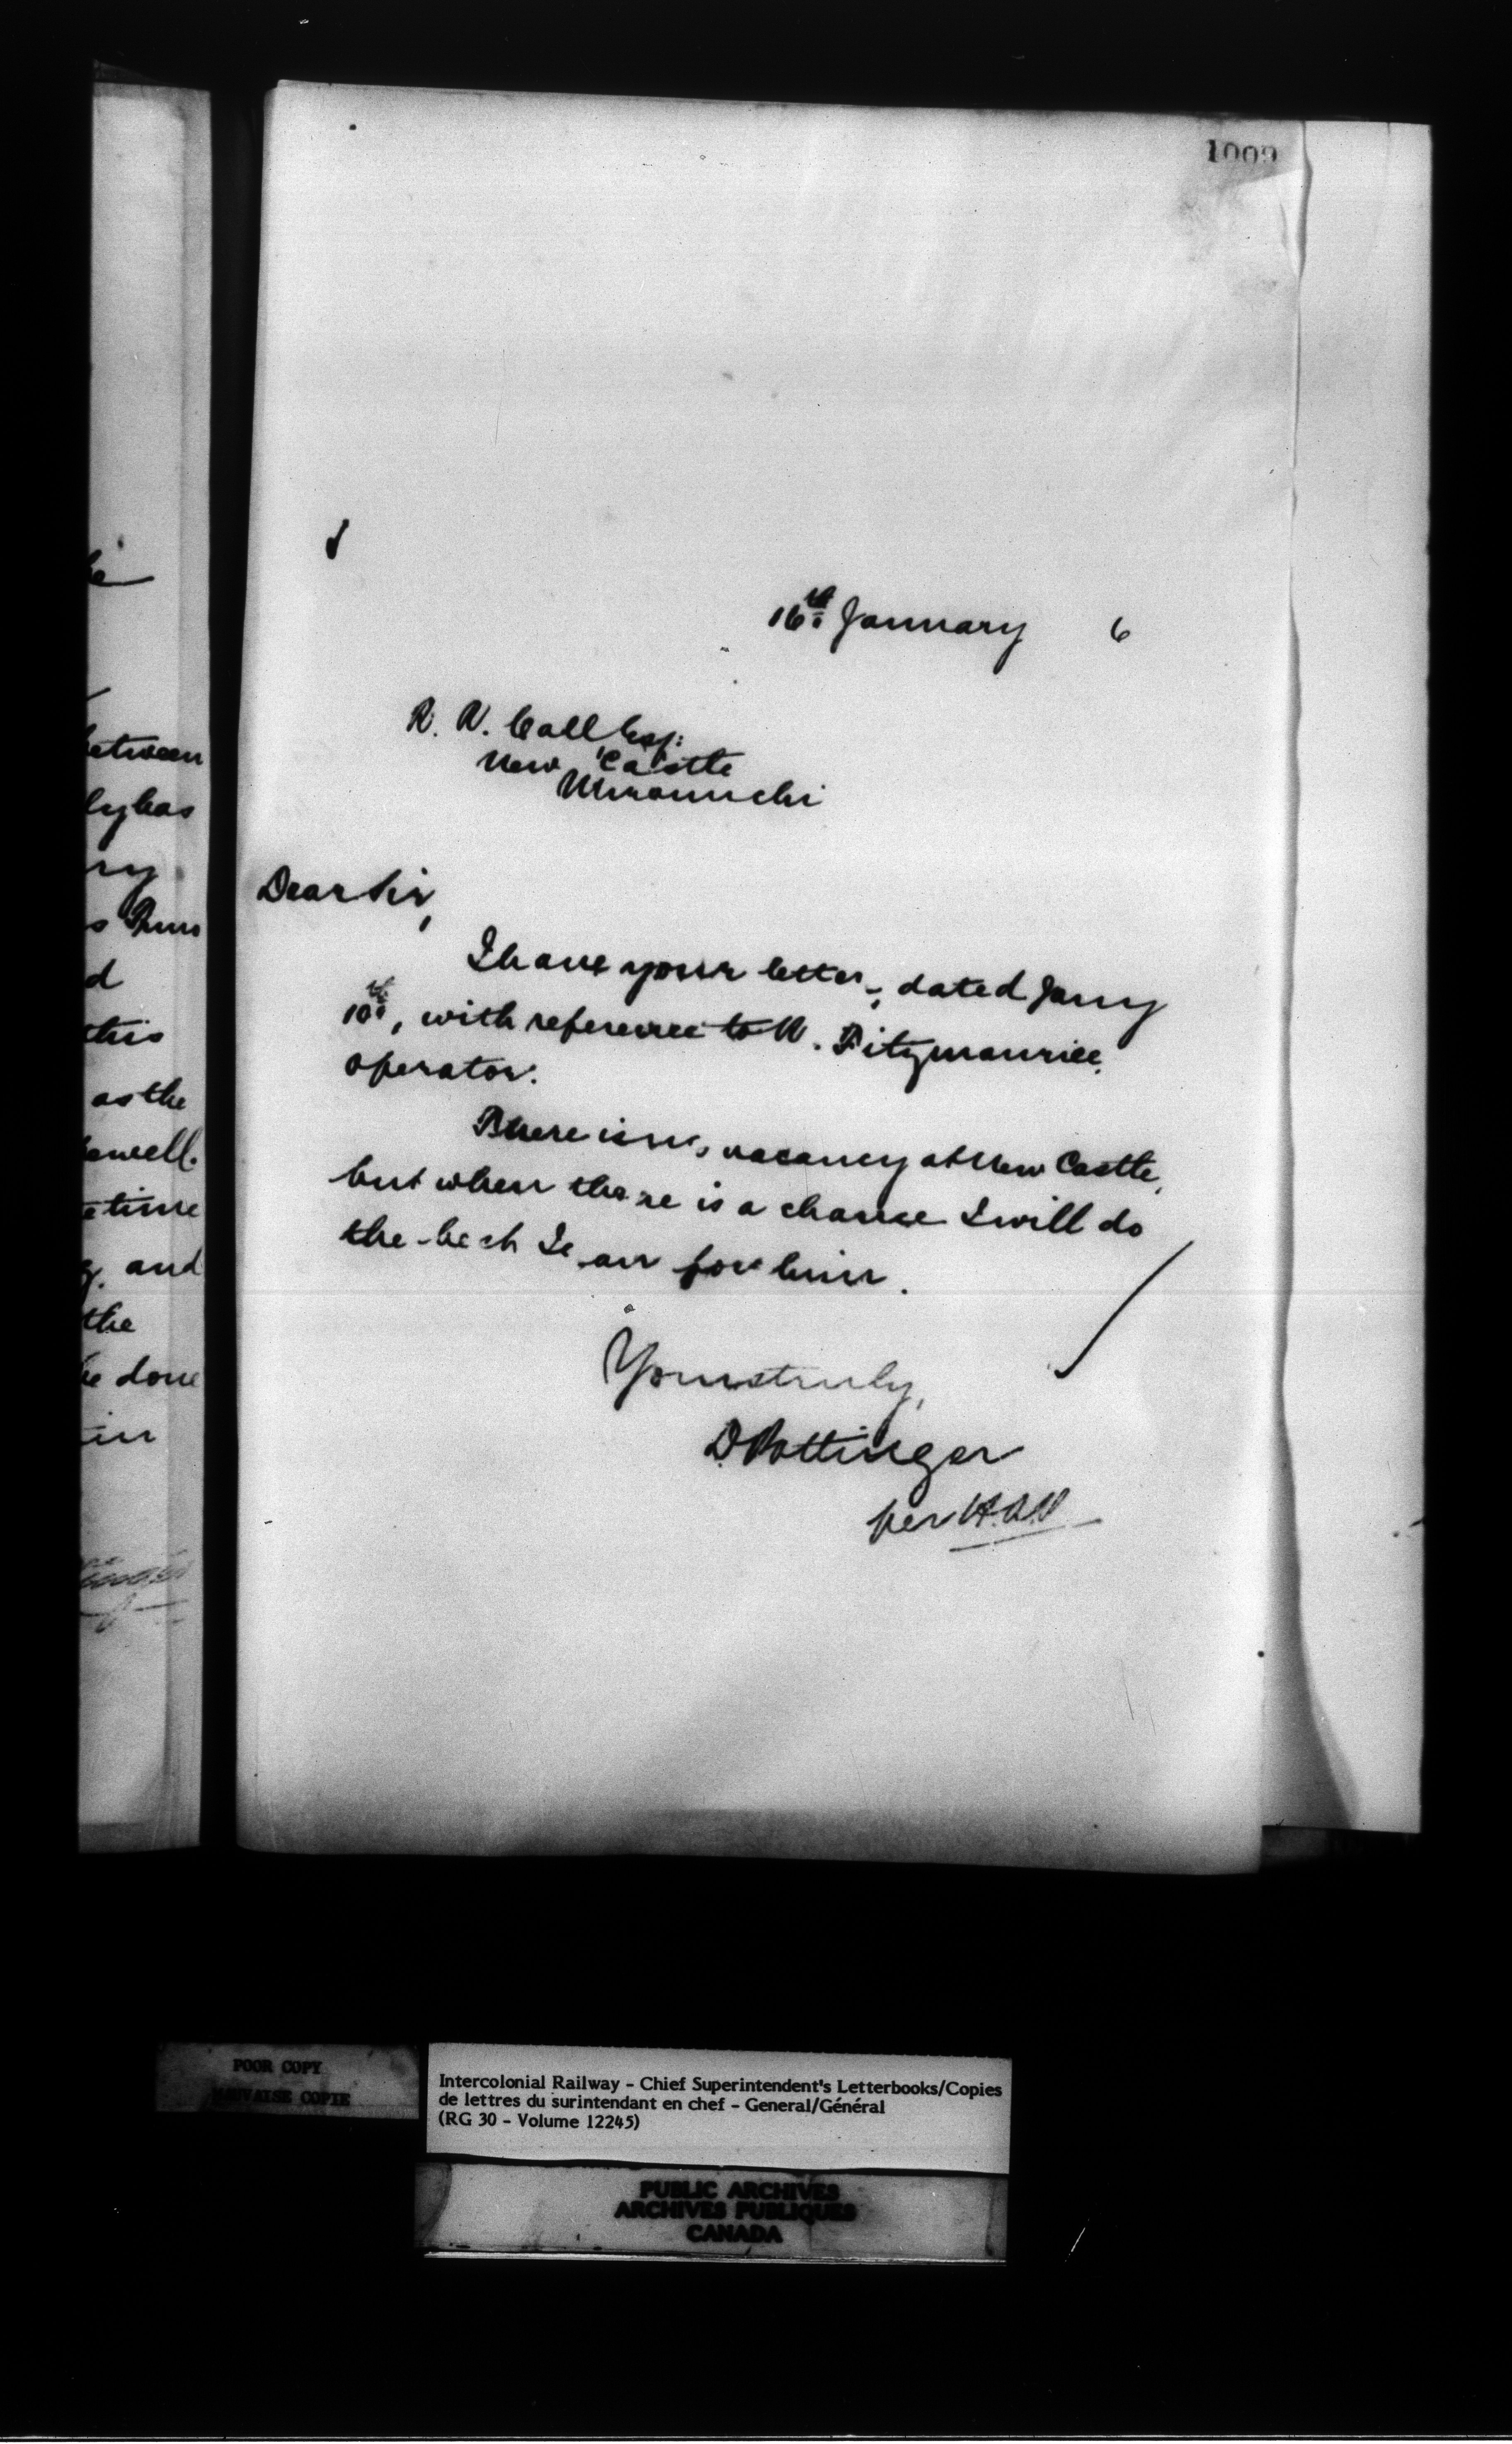 1009
16th January 6
R. R. Call Esq:
New Castle
Miramichi
Dear Sir,
I have your letter, dated Jany
10th, with reference to W. Fitzmaurice,
operator.
There is no vacancy at New Castle,
but when there is a chance I will do
the best I can for him.
Yours truly,
D Pottinger
per
etween
ly has
ry
d
this
as the
well.
time
and
the
be done
in
POOR COPY
MAUVAISE COPIE
Intercolonial Railway - Chief Superintendent's Letterbooks/Copies
de lettres du surintendant en chef - General/Général
(RG 30 - Volume 12245)
PUBLIC ARCHIVES
ARCHIVES PUBLIQUES
CANADA